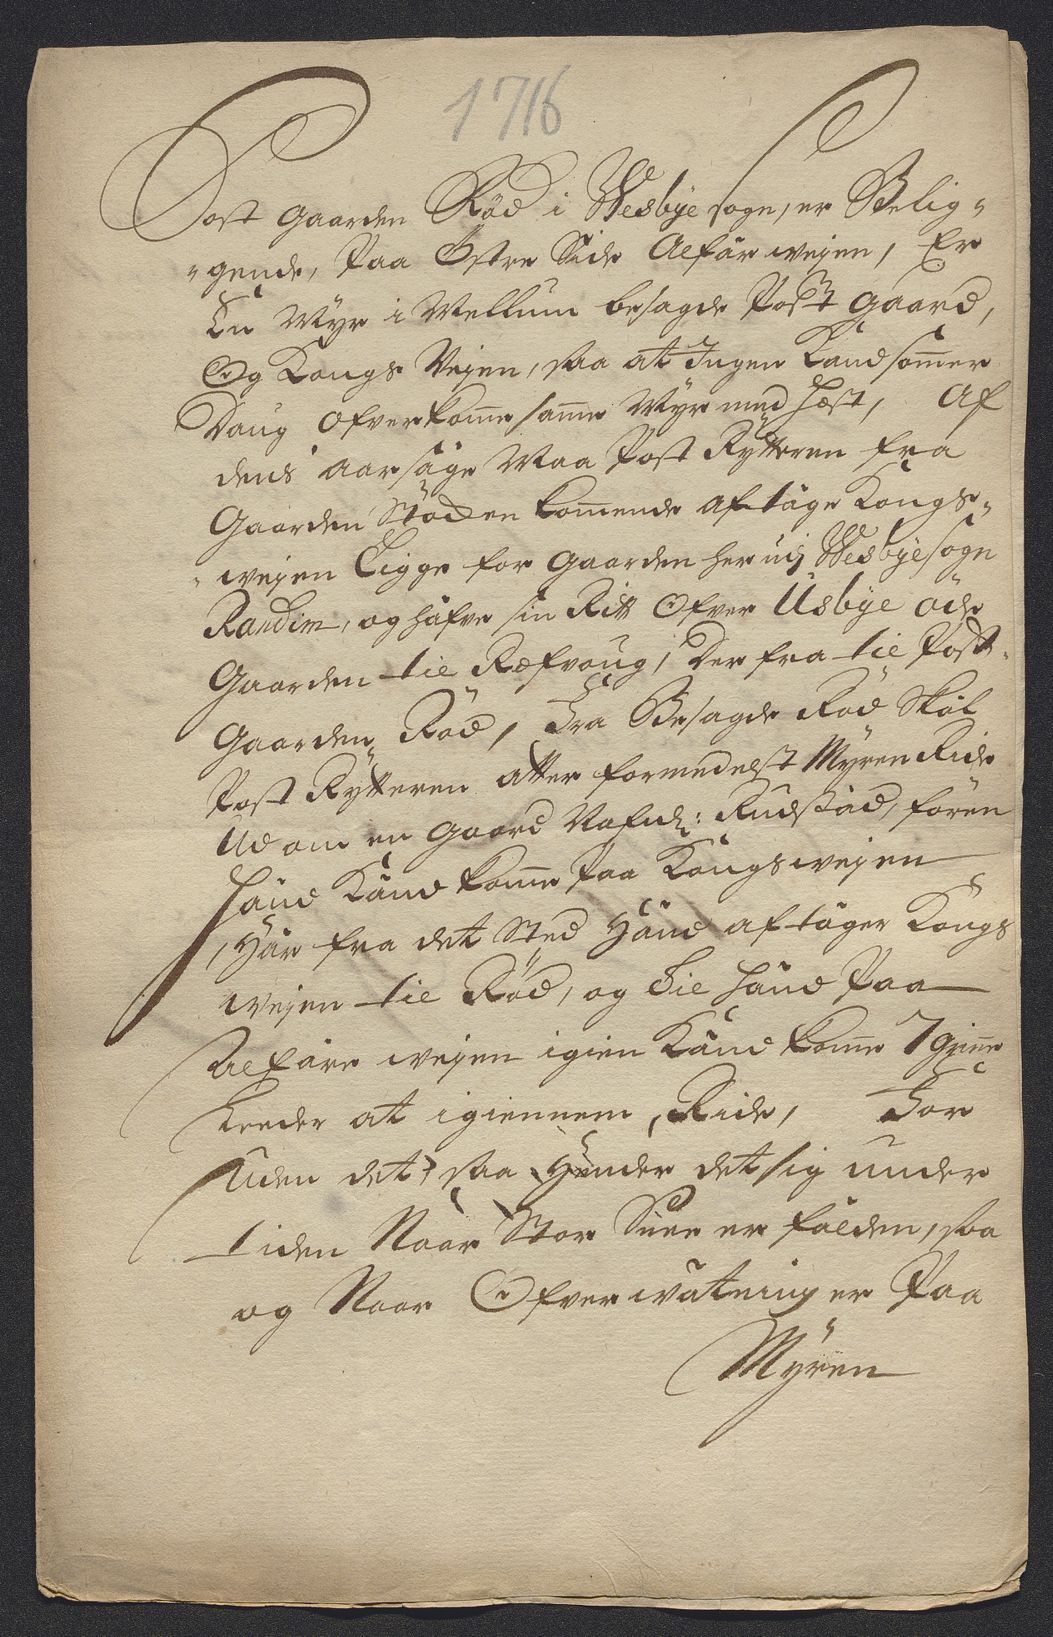 1716
Post Gaarden Röd i Wesbye sogn, er Belig-
-gende, Paa Östre Side Alfär weyen, Er
En Myr i Mellum besagde Post Gaard,
Og Kongs Veyen, saa at Ingen Kand sommer
Daug ofverkomme samme Myr med Hæst, Af
dens aarsage Maa Post Rÿtteren fra
Gaarden Stödden kommende af tage Kongs-
-weyen Ligge for Gaarden her udj Wesbye sogn
Randim, og hafve sin Ritt Ofver Usbÿe öde
Gaarden til Ræfvoug, Der fra til Post-
Gaarden Röd, Fra Besagde Röd Skal
Post Rÿtteren atter formedelst Myren Ride
Ud om en Gaard Nafnl: Rudstad, foren
hand Kand komme Paa Kongsweyen
, Här fra det Sted Hand aftager Kongs
weyen til Röd, og til hand Paa
Alfäre weyen igien Kand komme 7 Grinne
Leeder at igiennem Ride, For
uden det, saa Hender det sig under
tiden Naar Stor Snee er falden, saa
og Naar Ofver watning er Paa
Mÿren